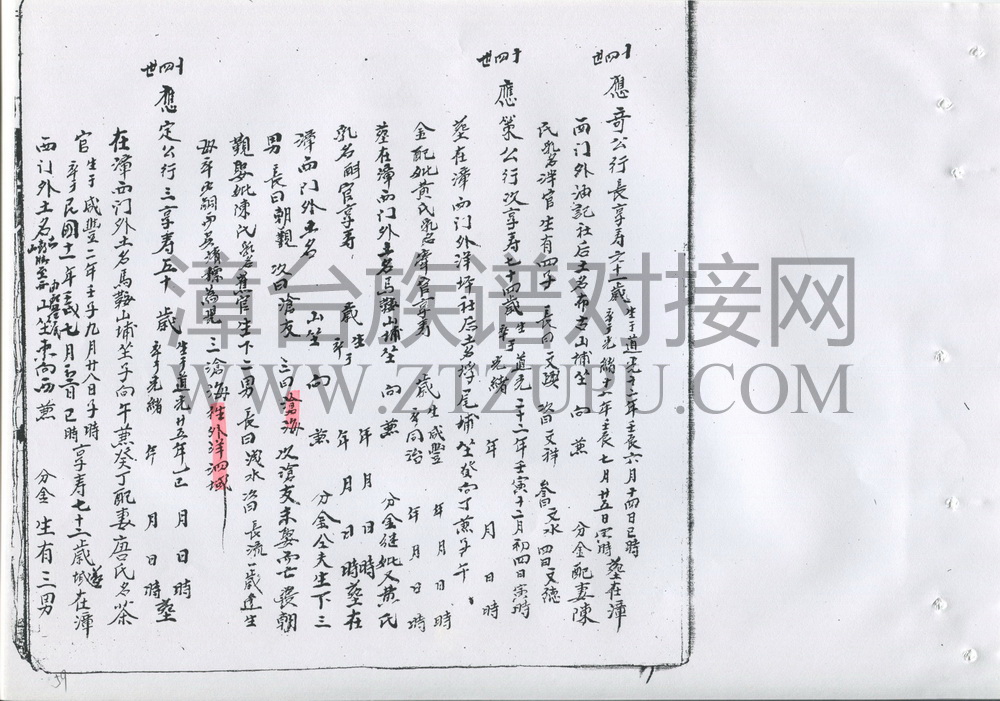 十四世
應奇公行長享壽六十一歲 生于道光十二年壬辰六月十四日巳時 卒于光緒十八年壬辰七月廿五日寅時 塟在漳
西门外油記社后土名布吉山埔坐 向 兼 分金配妻陳
氏乳名洋官生有四子 長曰文瑛 次曰文祥 叁曰文水 四曰文德
十四世
應策公行次享壽七十四歲 生于道光二十二年壬寅十二月初四日寅時 卒于光緒 年 月 日 時
塟在漳西门外洋坪社后土名桴尾埔坐癸向丁兼子午
金配妣黄氏乳名 官享壽 歲 生咸豐 年 月 日 時 卒同治 年 月 日 時
塟在漳西门外土名馬鞍山埔坐 向 兼 分金継妣又黄氏
乳名 官享壽 歲 生于 年 月 日 時 卒 年 月 日 時塟在
漳西门外土名 山坐 向 兼 分金公夫生下三
男 長曰朝觀 次曰滄友 三曰滄海 次滄友未娶而亡長朝
觀娶妣陳氏乳名 官生下二男 長曰浅水 次曰長流
毋卒 嗣 為兒 三滄海往外洋泗城
十四世
應定公行三享壽五十 歲 生于道光廿五年乙巳 月 日 時 卒于光緒 年 月 日 時塟
在漳西门外土名馬鞍山埔坐子向午兼癸丁配妻唐氏名茶
官 生于咸豐二年壬子九月廿八日子時 卒于民國十一年 七月 日巳時 享壽七十二歲 在漳
西门外土名 山坐東向西 兼 分金 生有三男
漳台族谱对接网
WWW.ZTZUPU.COM
59